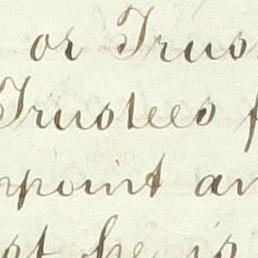 or Trus
Trustees f
ppoint an
st he is